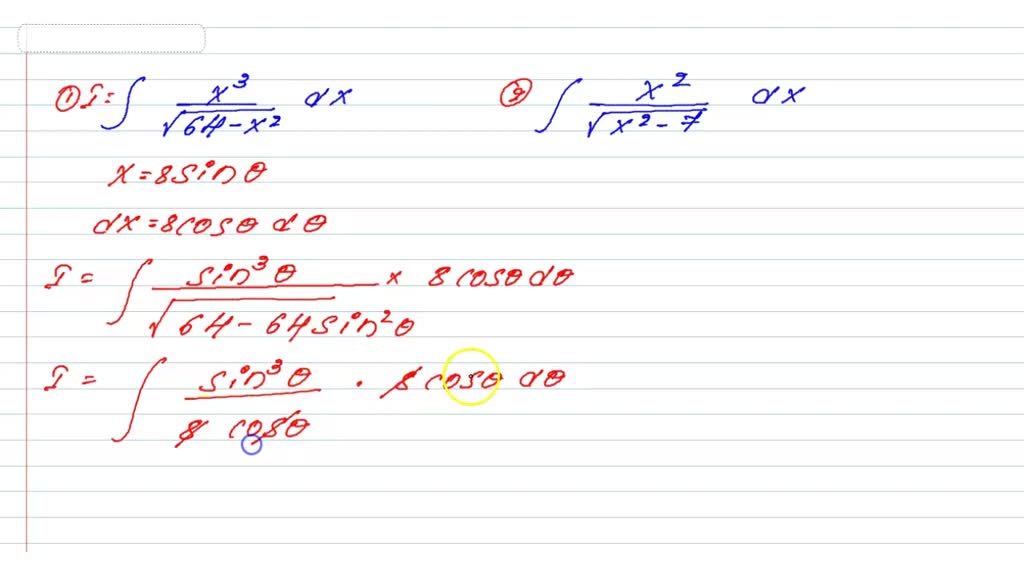 ① I = ∫ x³ / √(64 - x²) dx
② ∫ x² / √(x² - 7) dx
x = 8 sin θ
dx = 8 cos θ d θ
I = ∫ sin³ θ / √(64 - 64 sin² θ) × 8 cos θ d θ
I = ∫ sin³ θ / 8 cos θ . 8 cos θ d θ